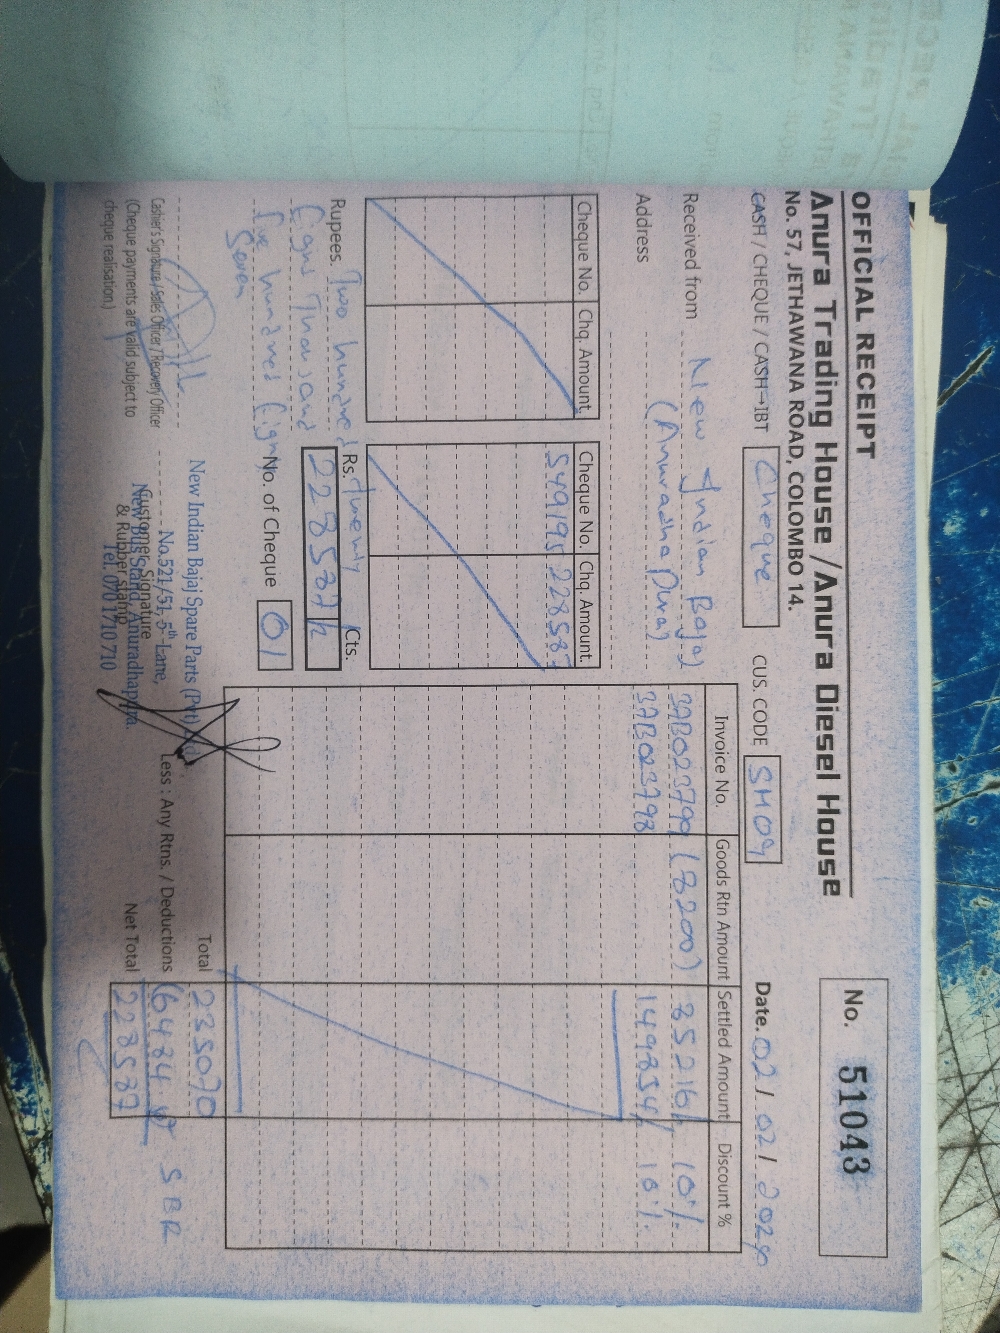 OFFICIAL RECEIPT
No. 51043
Anura Trading House / Anura Diesel House
No. 57, JETHAWANA ROAD, COLOMBO 14.
CASH / CHEQUE / CASH-IBT Cheque CUS. CODE SM09 Date. 02/02/202
Received from New Indian Bajaj
Address (Anuradhapura)
Cheque No. Chq. Amount
Cheque No. Chq. Amount
549195 228587
Invoice No. Goods Rtn Amount Settled Amount Discount %
3AB023799 (8200) 85216/ 10%
3AB023798 149854/ 10%
Rupees. Two hundred twenty
Eight Thousand
five hundred Eighty
Seven
Rs. Cts.
228587/
No. of Cheque 01
Total 235070
Less : Any Rtns / Deductions (6484 SBR
Net Total 228587
Cashier's Signature / Sales Officer / Recovery Officer
(Cheque payments are valid subject to
cheque realisation.)
Customer's Signature
& Rubber stamp
New Indian Bajaj Spare Parts (Pvt) Ltd
No.521/51, 5th Lane,
New Bus Stand, Anuradhapura.
Tel: 070 1710 710